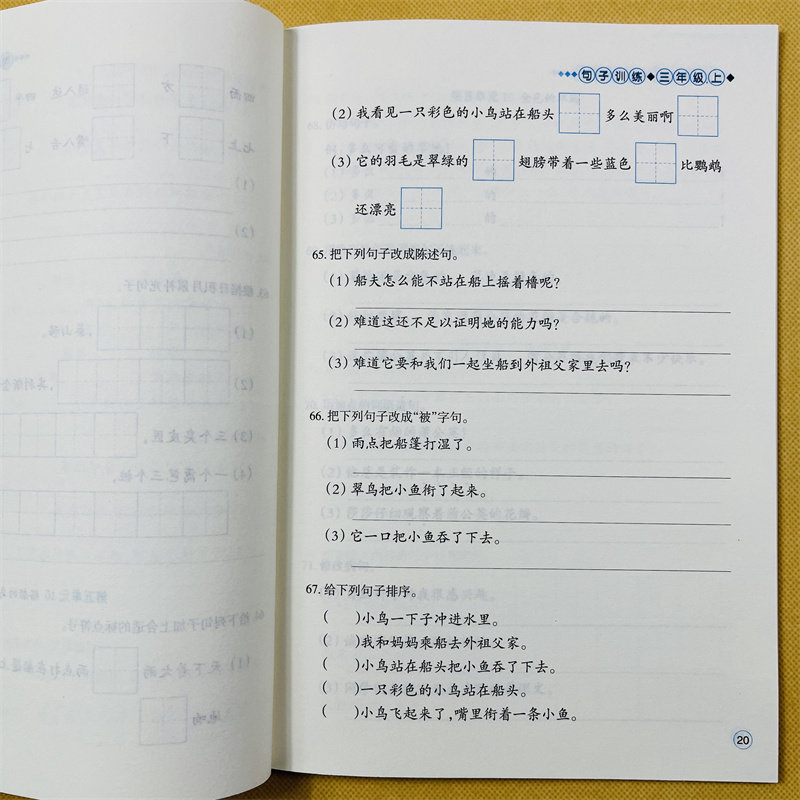 句子训练◆三年级上
(2)我看见一只彩色的小鸟站在船头 多么美丽啊
(3)它的羽毛是翠绿的 翅膀带着一些蓝色 比鹦鹉
还漂亮
65.把下列句子改成陈述句。
(1)船夫怎么能不站在船上摇着橹呢?
(2)难道这还不足以证明她的能力吗?
(3)难道它要和我们一起坐船到外祖父家里去吗?
66.把下列句子改成“被”字句。
(1)雨点把船篷打湿了。
(2)翠鸟把小鱼衔了起来。
(3)它一口把小鱼吞了下去。
67.给下列句子排序。
( )小鸟一下子冲进水里。
( )我和妈妈乘船去外祖父家。
( )小鸟站在船头把小鱼吞了下去。
( )一只彩色的小鸟站在船头。
( )小鸟飞起来了,嘴里衔着一条小鱼。
20